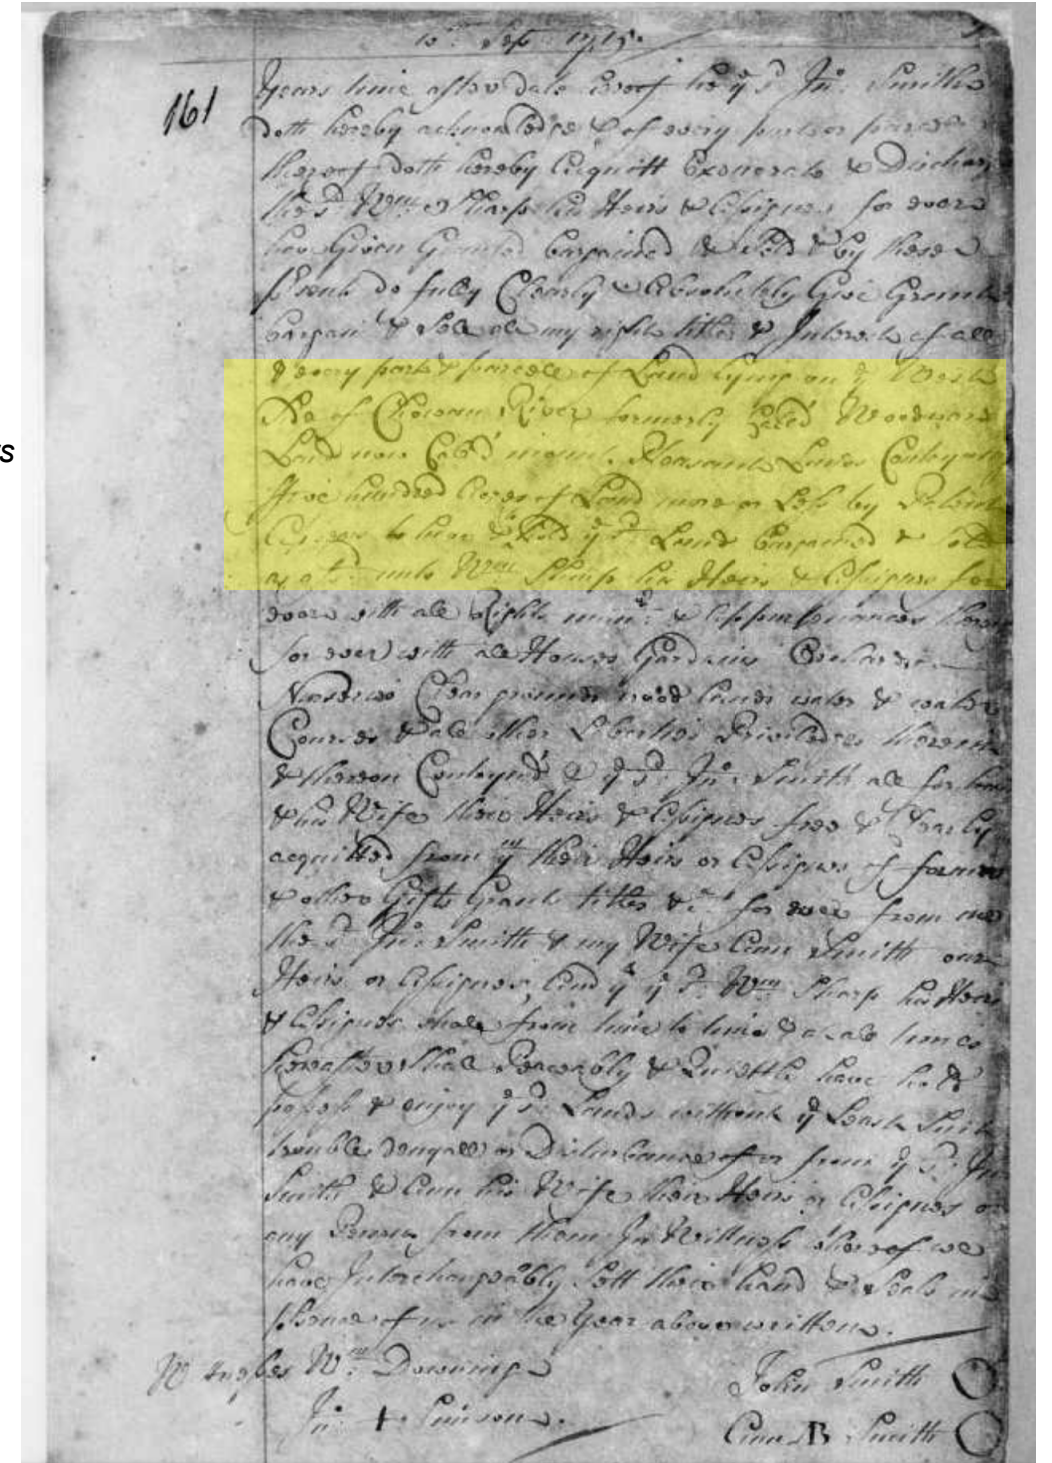 10th Sepr 1715.
161
Years time after date hereof he ye sd Jno: Smith
doth hereby acknowledge & of every part or parcel
thereof doth hereby Acquitt Exonerate & Dischar
the sd Wm Sharp his Heirs & Assignes for ever
have Given Granted bargained & Sold & by these
do fully Clearly & Absolutely Give Grant
bargain & Sell all my right title & Interest of all
& every part & parcell of Land lying on ye West
Side of Chowan River formerly Called Woodwards
Land now Call'd mount Pleasant Land Conteyning
ffive hundred Acres of Land more or Less by Patent
to have & hold ye sd Land bargained & sold
unto Wm Sharp his Heirs & Assignes for
ever with all Rights & Appurtenances
for ever with all Houses Gardains Orchards
Clear grounds wood lands water & water
Courses & all other Liberties Priviledges
& thereon Conteyn'd ye sd Jno: Smith all for
& his Wife their Heirs & Assignes free & Clearly
acquitted from their Heirs or Assignes of former
& other Gifts Grants titles &c: for ever from me
the sd Jno: Smith & my Wife Ann Smith our
Heirs or Assignes, And yt ye sd Wm Sharp his Heirs
& Assignes shall from time to time & at all times
hereafter shall Peaceably & Quiettly have hold
possess & enjoy ye sd Lands without ye Least Suit
trouble denyall or Disturbance of or from ye sd Jno
Smith & Ann his Wife their Heirs or Assignes or
any Person from them In Wittness whereof we
have Interchangeably Sett their hand & Seals in
of us in the Year above written.
W Hughes Wm: Downing
Jno: + Simson.
John Smith
Ann B Smith